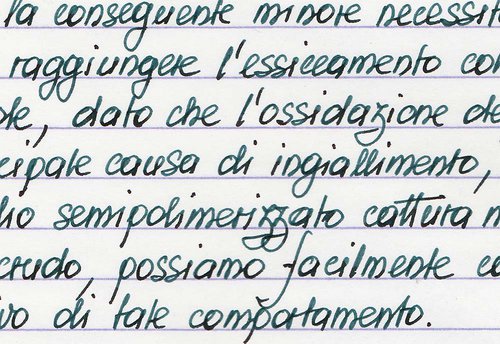 la conseguente minore necessit
raggiungere l'essiccamento co
le, dato che l'ossidazione de
cipale causa di ingiallimento,
lio semipolimerizzato cattura
crudo, possiamo facilmente
vo di tale comportamento.